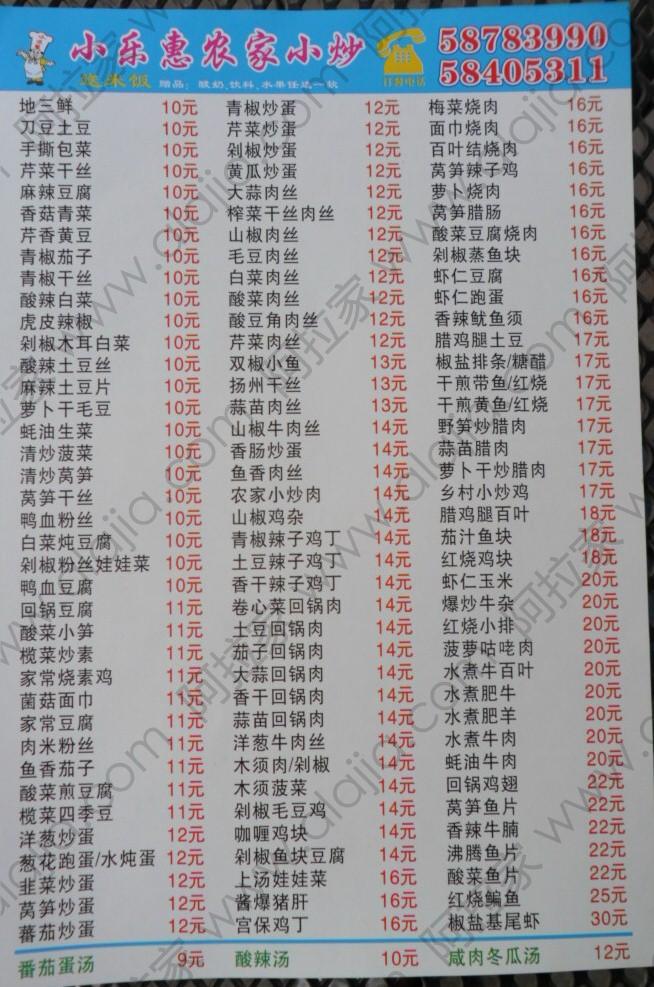 小乐惠农家小炒
58783990
58405311
送米饭 赠品：酸奶,饮料,水果任选一款
订餐电话
地三鲜 10元
刀豆土豆 10元
手撕包菜 10元
芹菜干丝 10元
麻辣豆腐 10元
香菇青菜 10元
芹香黄豆 10元
青椒茄子 10元
青椒干丝 10元
酸辣白菜 10元
虎皮辣椒 10元
剁椒木耳白菜 10元
酸辣土豆丝 10元
麻辣土豆片 10元
萝卜干毛豆 10元
蚝油生菜 10元
清炒菠菜 10元
清炒莴笋 10元
莴笋干丝 10元
鸭血粉丝 10元
白菜炖豆腐 10元
剁椒粉丝娃娃菜 10元
鸭血豆腐 10元
回锅豆腐 11元
酸菜小笋 11元
榄菜炒素 11元
家常烧素鸡 11元
菌菇面巾 11元
家常豆腐 11元
肉米粉丝 11元
鱼香茄子 11元
酸菜煎豆腐 11元
榄菜四季豆 11元
洋葱炒蛋 12元
葱花跑蛋/水炖蛋 12元
韭菜炒蛋 12元
莴笋炒蛋 12元
蕃茄炒蛋 12元
青椒炒蛋 12元
芹菜炒蛋 12元
剁椒炒蛋 12元
黄瓜炒蛋 12元
大蒜肉丝 12元
榨菜干丝肉丝 12元
山椒肉丝 12元
毛豆肉丝 12元
白菜肉丝 12元
酸菜肉丝 12元
酸豆角肉丝 12元
芹菜肉丝 12元
双椒小鱼 13元
扬州干丝 13元
蒜苗肉丝 13元
山椒牛肉丝 14元
香肠炒蛋 14元
鱼香肉丝 14元
农家小炒肉 14元
山椒鸡杂 14元
青椒辣子鸡丁 14元
土豆辣子鸡丁 14元
香干辣子鸡丁 14元
卷心菜回锅肉 14元
土豆回锅肉 14元
茄子回锅肉 14元
大蒜回锅肉 14元
香干回锅肉 14元
蒜苗回锅肉 14元
洋葱牛肉丝 14元
木须肉/剁椒 14元
木须菠菜 14元
剁椒毛豆鸡 14元
咖喱鸡块 14元
剁椒鱼块豆腐 14元
上汤娃娃菜 16元
酱爆猪肝 16元
宫保鸡丁 16元
梅菜烧肉 16元
面巾烧肉 16元
百叶结烧肉 16元
莴笋辣子鸡 16元
萝卜烧肉 16元
莴笋腊肠 16元
酸菜豆腐烧肉 16元
剁椒蒸鱼块 16元
虾仁豆腐 16元
虾仁跑蛋 16元
香辣鱿鱼须 16元
腊鸡腿土豆 17元
椒盐排条/糖醋 17元
干煎带鱼/红烧 17元
干煎黄鱼/红烧 17元
野笋炒腊肉 17元
蒜苗腊肉 17元
萝卜干炒腊肉 17元
乡村小炒鸡 17元
腊鸡腿百叶 18元
茄汁鱼块 18元
红烧鸡块 18元
虾仁玉米 20元
爆炒牛杂 20元
红烧小排 20元
菠萝咕咾肉 20元
水煮牛百叶 20元
水煮肥牛 20元
水煮肥羊 20元
水煮牛肉 20元
蚝油牛肉 20元
回锅鸡翅 22元
莴笋鱼片 22元
香辣牛腩 22元
沸腾鱼片 22元
酸菜鱼片 22元
红烧鳊鱼 25元
椒盐基尾虾 30元
番茄蛋汤 9元
酸辣汤 10元
咸肉冬瓜汤 12元
阿拉家 www.alajia.com